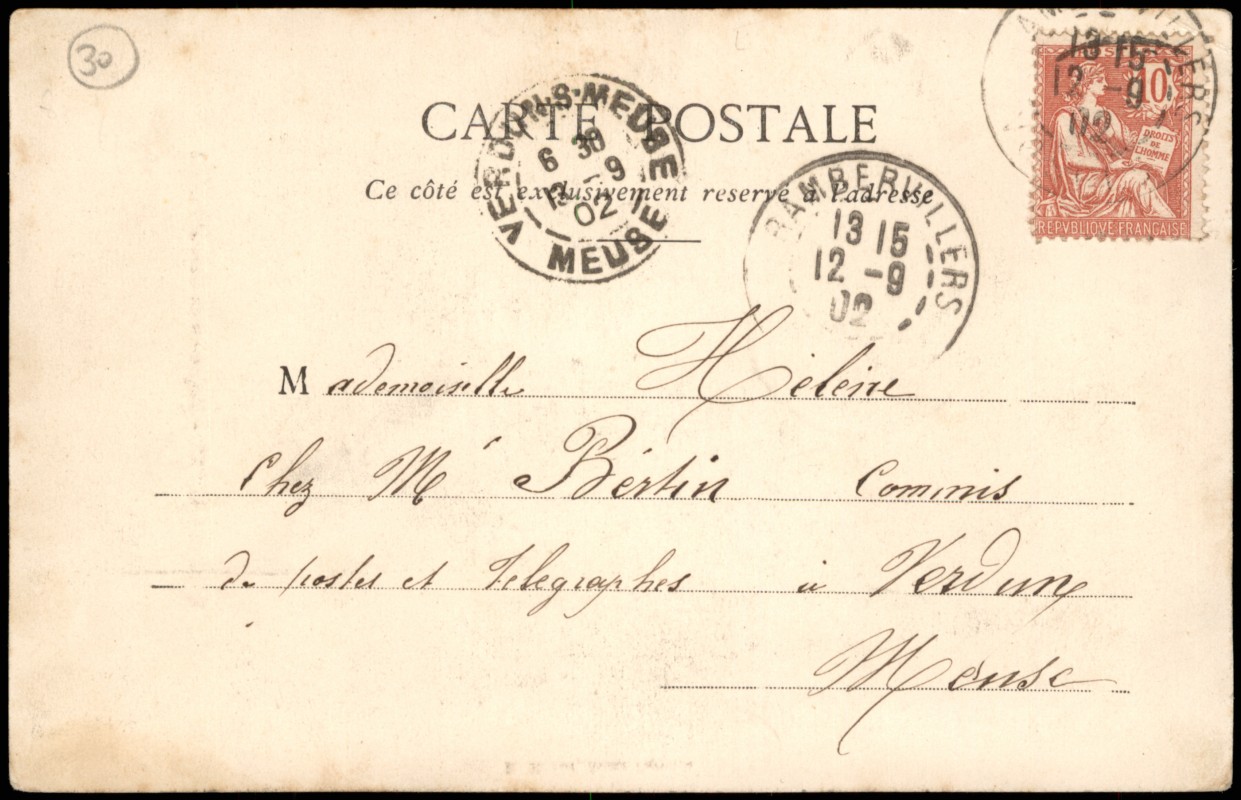 30
CARTE POSTALE
Ce côté est exclusivement reservé à l'adresse
VERDUN-S-MEUSE
6 30
13 - 9
02
MEUSE
RAMBERVILLERS
13 15
12 - 9
02
RAMBERVILLERS
13 15
12 - 9
02
10
DROITS
DE
L'HOMME
REPVBLIQVE FRANÇAISE
Mademoiselle Hélène
Chez Mr Bértin Commis
de postes et télégraphes à Verdun
Meuse